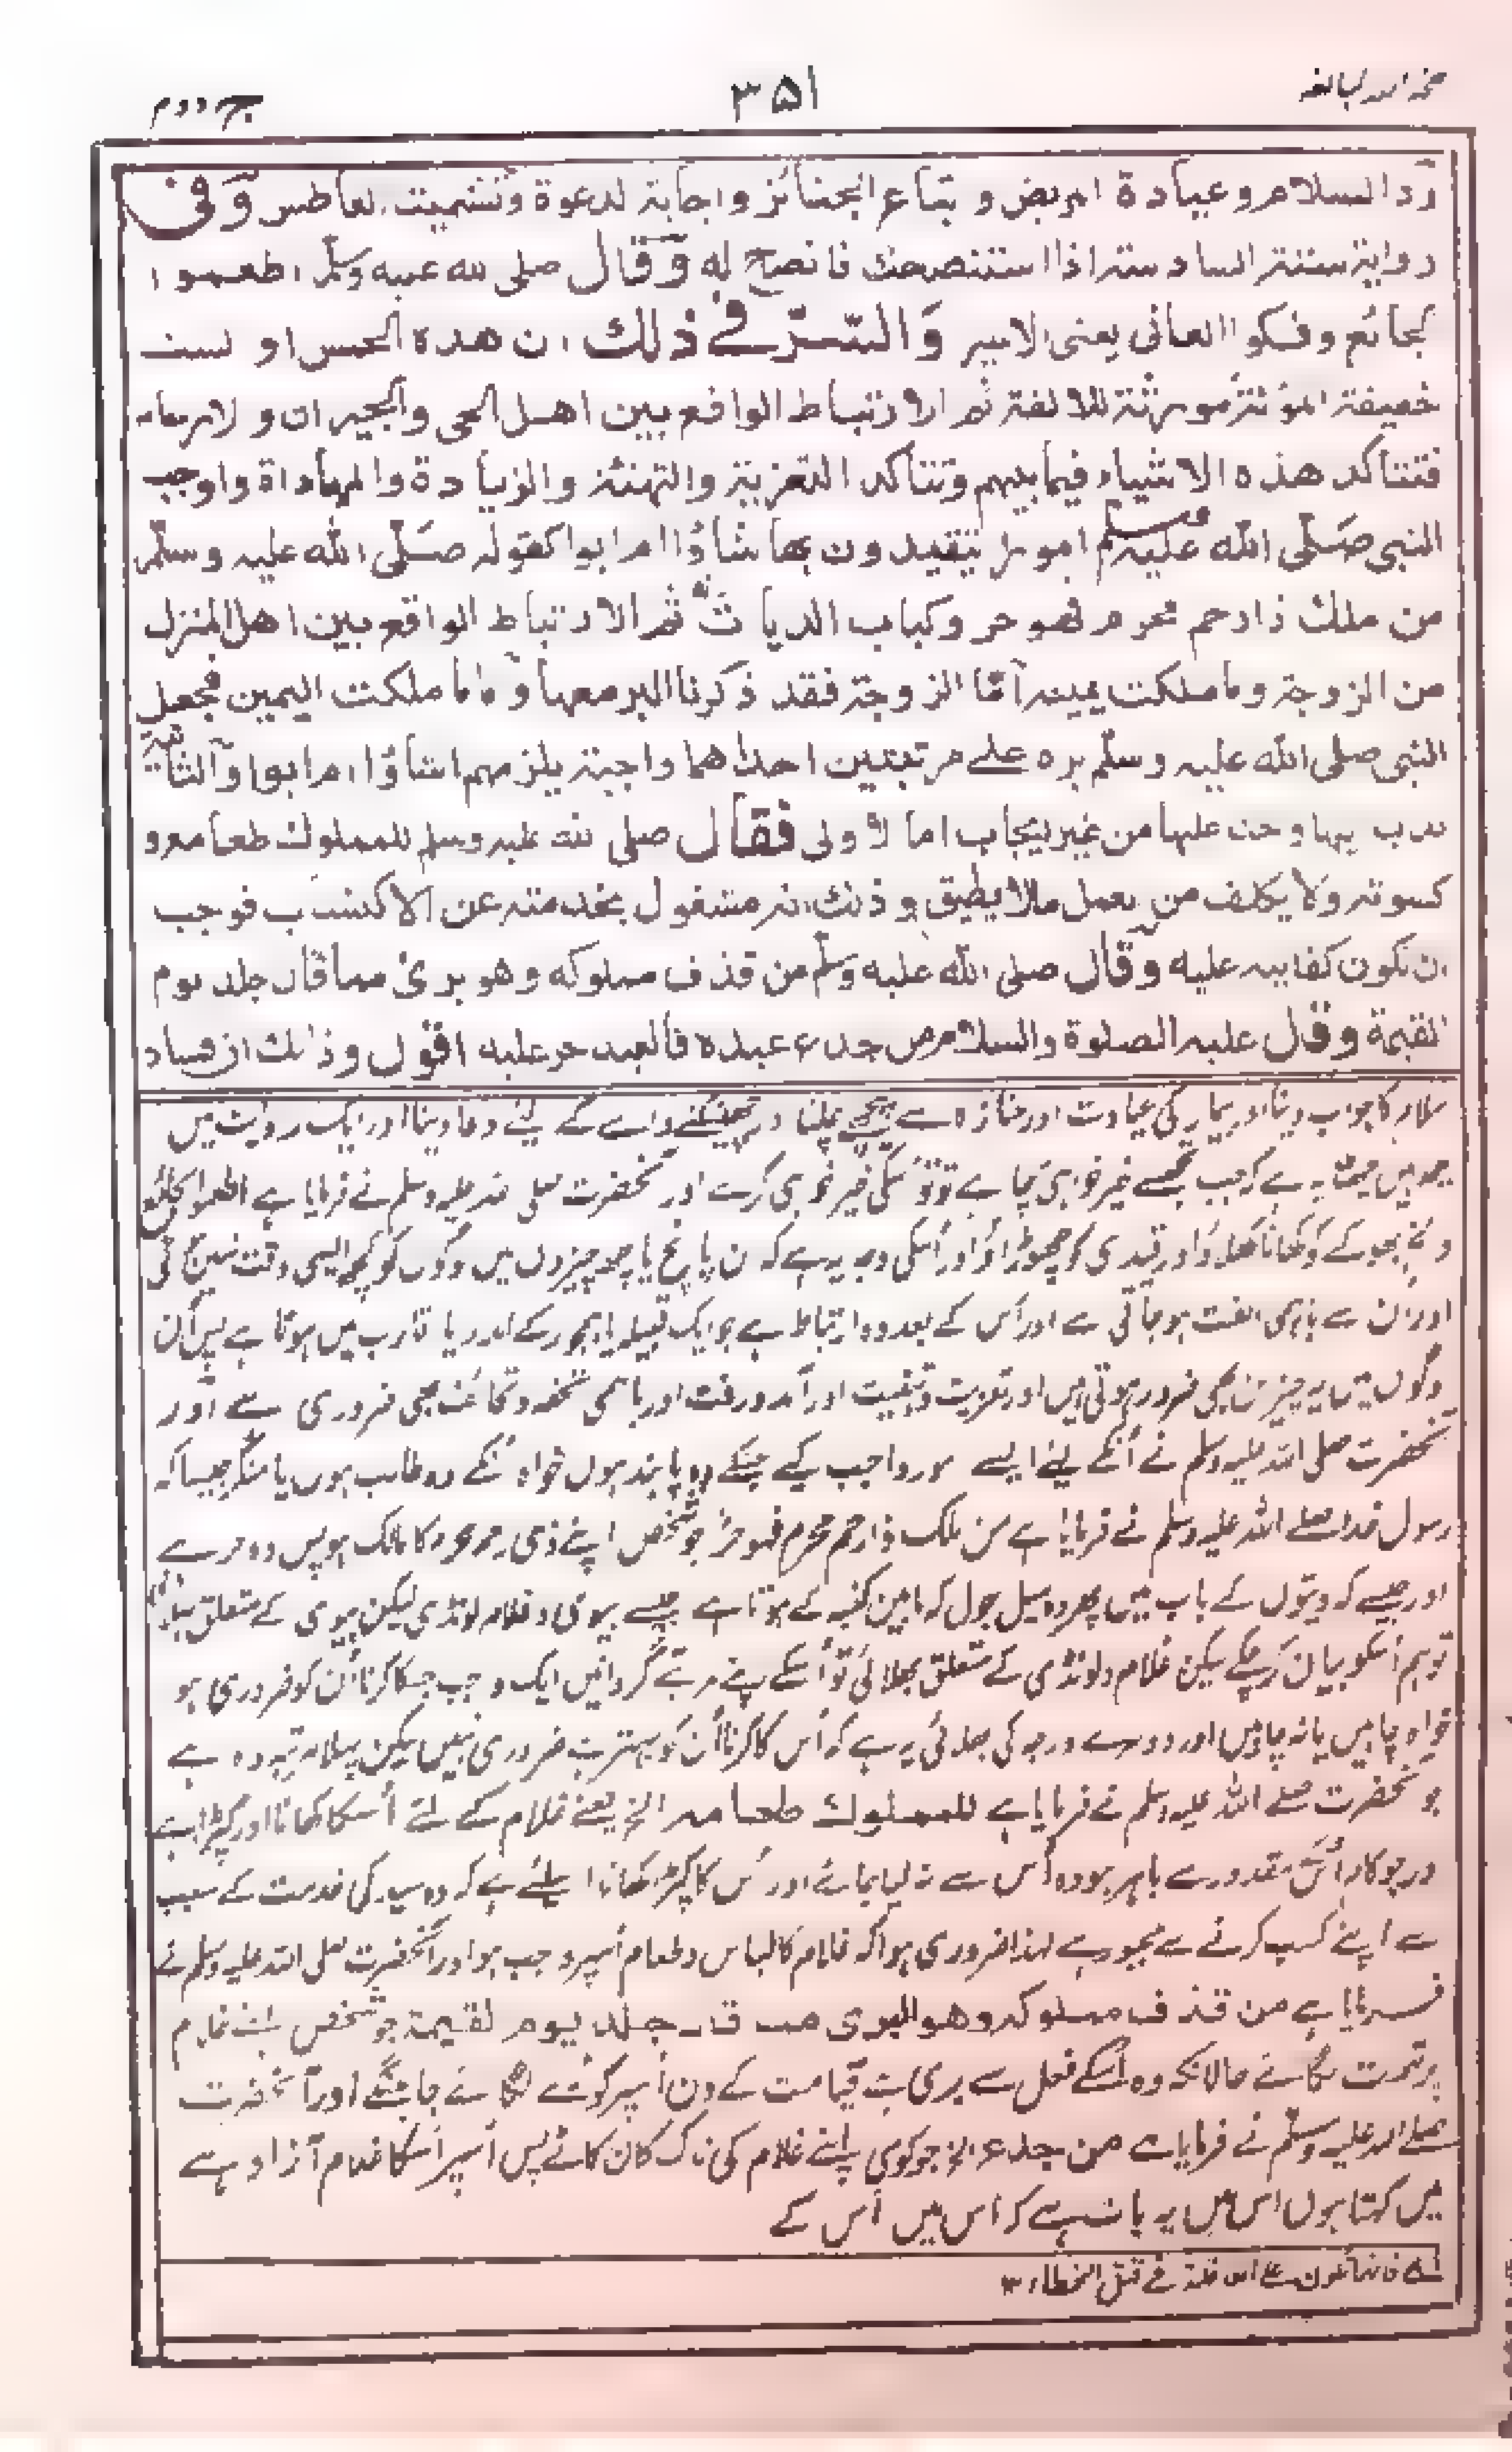 حجۃ اللہ البالغہ
۳۵۱
ج دوم
رد السلام وعيادة المريض و اتباع الجنائز واجابة الدعوة وتشميت العاطس وَفى
رواية ستة السادسة اذا استنصحك فانصح له وَقال صلى الله عليه وسلم اطعموا
الجائع وفكوا العانى يعنى الاسير وَالسّرّ فى ذلك ان هذه الخمس او الست
خفيفة المؤنة مورثة للالفة ثم الارتباط الواقع بين اهل الحى والجيران و الارحام
فتتأكد هذه الاشياء فيما بينهم وتتأكد التعزية والتهنئة والزيادة والمهاداة واوجب
النبى صَلّى الله عليه وسلم امورا يتقيدون بها شاؤا ام ابوا كقوله صَلّى الله عليه وسلّم
من ملك ذا رحم محرم فهو حر وكباب الديات ثم الارتباط الواقع بين اهل المنزل
من الزوجة وما ملكت يمينه اَمّا الزوجة فقد ذكرنا البر معها وَاما ما ملكت اليمين فجعل
النبى صلى الله عليه وسلّم بره على مرتبتين احداهما واجبة يلزمهم اشاؤا ام ابوا وَالثانية
ندب اليها وحث عليها من غير ايجاب اما الاولى فقال صلى الله عليه وسلم للمملوك طعامه و
كسوته ولا يكلف من العمل مالا يطيق وذلك انه مشغول بخدمته عن الاكتساب فوجب
ان تكون كفايته عليه وَقال صلى الله عليه وسلّم من قذف مملوكه وهو برئ مما قال جلد يوم
القيمة وقال عليه الصلوة والسلام من جدع عبده فالعبد حر عليه اقول وذلك ان فساد
سلام کا جواب دینا اور بیمار کی عیادت اور جنازہ کے پیچھے چلنا اور چھینکنے والے کے لئے دعا دینا اور ایک روایت میں
چھ ہیں چھٹا یہ ہے کہ جب تجھسے خیر خواہی چاہے تو تو اُسکی خیر خواہی کرے اور آنحضرت صلی اللہ علیہ وسلم نے فرمایا ہے اطعموا الجائع
الخ بھوکے کو کھانا کھلاؤ اور قیدی کو چھوڑاؤ اور اُسکی وجہ یہ ہے کہ ان پانچ یا چھ چیزوں میں لوگوں کو کچھ ایسی دقت نہیں ہوتی
اور ان سے باہمی الفت ہوجاتی ہے اور اُس کے بعد وہ ارتباط ہے جو ایک قبیلہ یا ہجوار کے اندر یا اقارب میں ہوتا ہے پس اُن
لوگوں میں یہ چیزیں بھی ضرور ہوتی ہیں اور تعزیت و تہنیت اور آمد و رفت اور باہمی تحفہ و تحائف بھی ضروری ہے اور
آنحضرت صلی اللہ علیہ وسلم نے اُنکے لیے ایسے امور واجب کیے جنکے وہ پابند ہوں خواہ اُنکے وہ طالب ہوں یا منکر جیسا کہ
رسول خدا صلے اللہ علیہ وسلم نے فرمایا ہے من ملک ذا رحم محرم فہو حر جو شخص اپنے ذی رحم محرم کا مالک ہو پس وہ حر ہے
اور جیسے کہ دیتوں کے باب میں پھر وہ میل جول کہ مابین کنبہ کے ہوتا ہے جیسے بیوی و غلام لونڈی لیکن بیوی کے متعلق بھلائی
تو ہم اُسکو بیان کر چکے لیکن غلام و لونڈی کے متعلق بھلائی تو اُسکے اپنے مرتبے گردانیں ایک واجب جسکا کرنا اُن کو ضروری ہو
خواہ چاہیں یا نہ چاہیں اور دوسرے درجہ کی بھلائی یہ ہے کہ اُس کا کرنا اُن کو بہتر ہے ضروری نہیں لیکن پہلا مرتبہ وہ ہے
جو آنحضرت صلے اللہ علیہ وسلم نے فرمایا ہے للمملوك طعامه الخ یعنے غلام کے لئے اُسکا کھانا اور کپڑا ہے
اور جو کام اُسکی مقدور سے باہر ہو وہ اُس سے نہ لیا جائے اور اُس کا کپڑا کھانا اسلئے ہے کہ وہ سید کی خدمت کے سبب
سے اپنے کسب کرنے سے مجبور ہے لہذا ضروری ہوا کہ غلام کا لباس و طعام اُسپر واجب ہو اور آنحضرت صلی اللہ علیہ وسلم نے
فرمایا ہے من قذف مملوكه وهو البرى مما قال جلد يوم القيمة جو شخص اپنے غلام
پر تہمت لگائے حالانکہ وہ اُسکے فعل سے بری ہے قیامت کے دن اُسپر کوڑے لگائے جاینگے اور آنحضرت
صلے اللہ علیہ وسلم نے فرمایا ہے من جدع الخ جو کوی اپنے غلام کی ناک کان کاٹے پس اُسپر اُسکا غلام آزاد ہے
میں کہتا ہوں اس میں یہ بات ہے کہ اس میں اُس کے
فى قتل الخطاء ۱۲